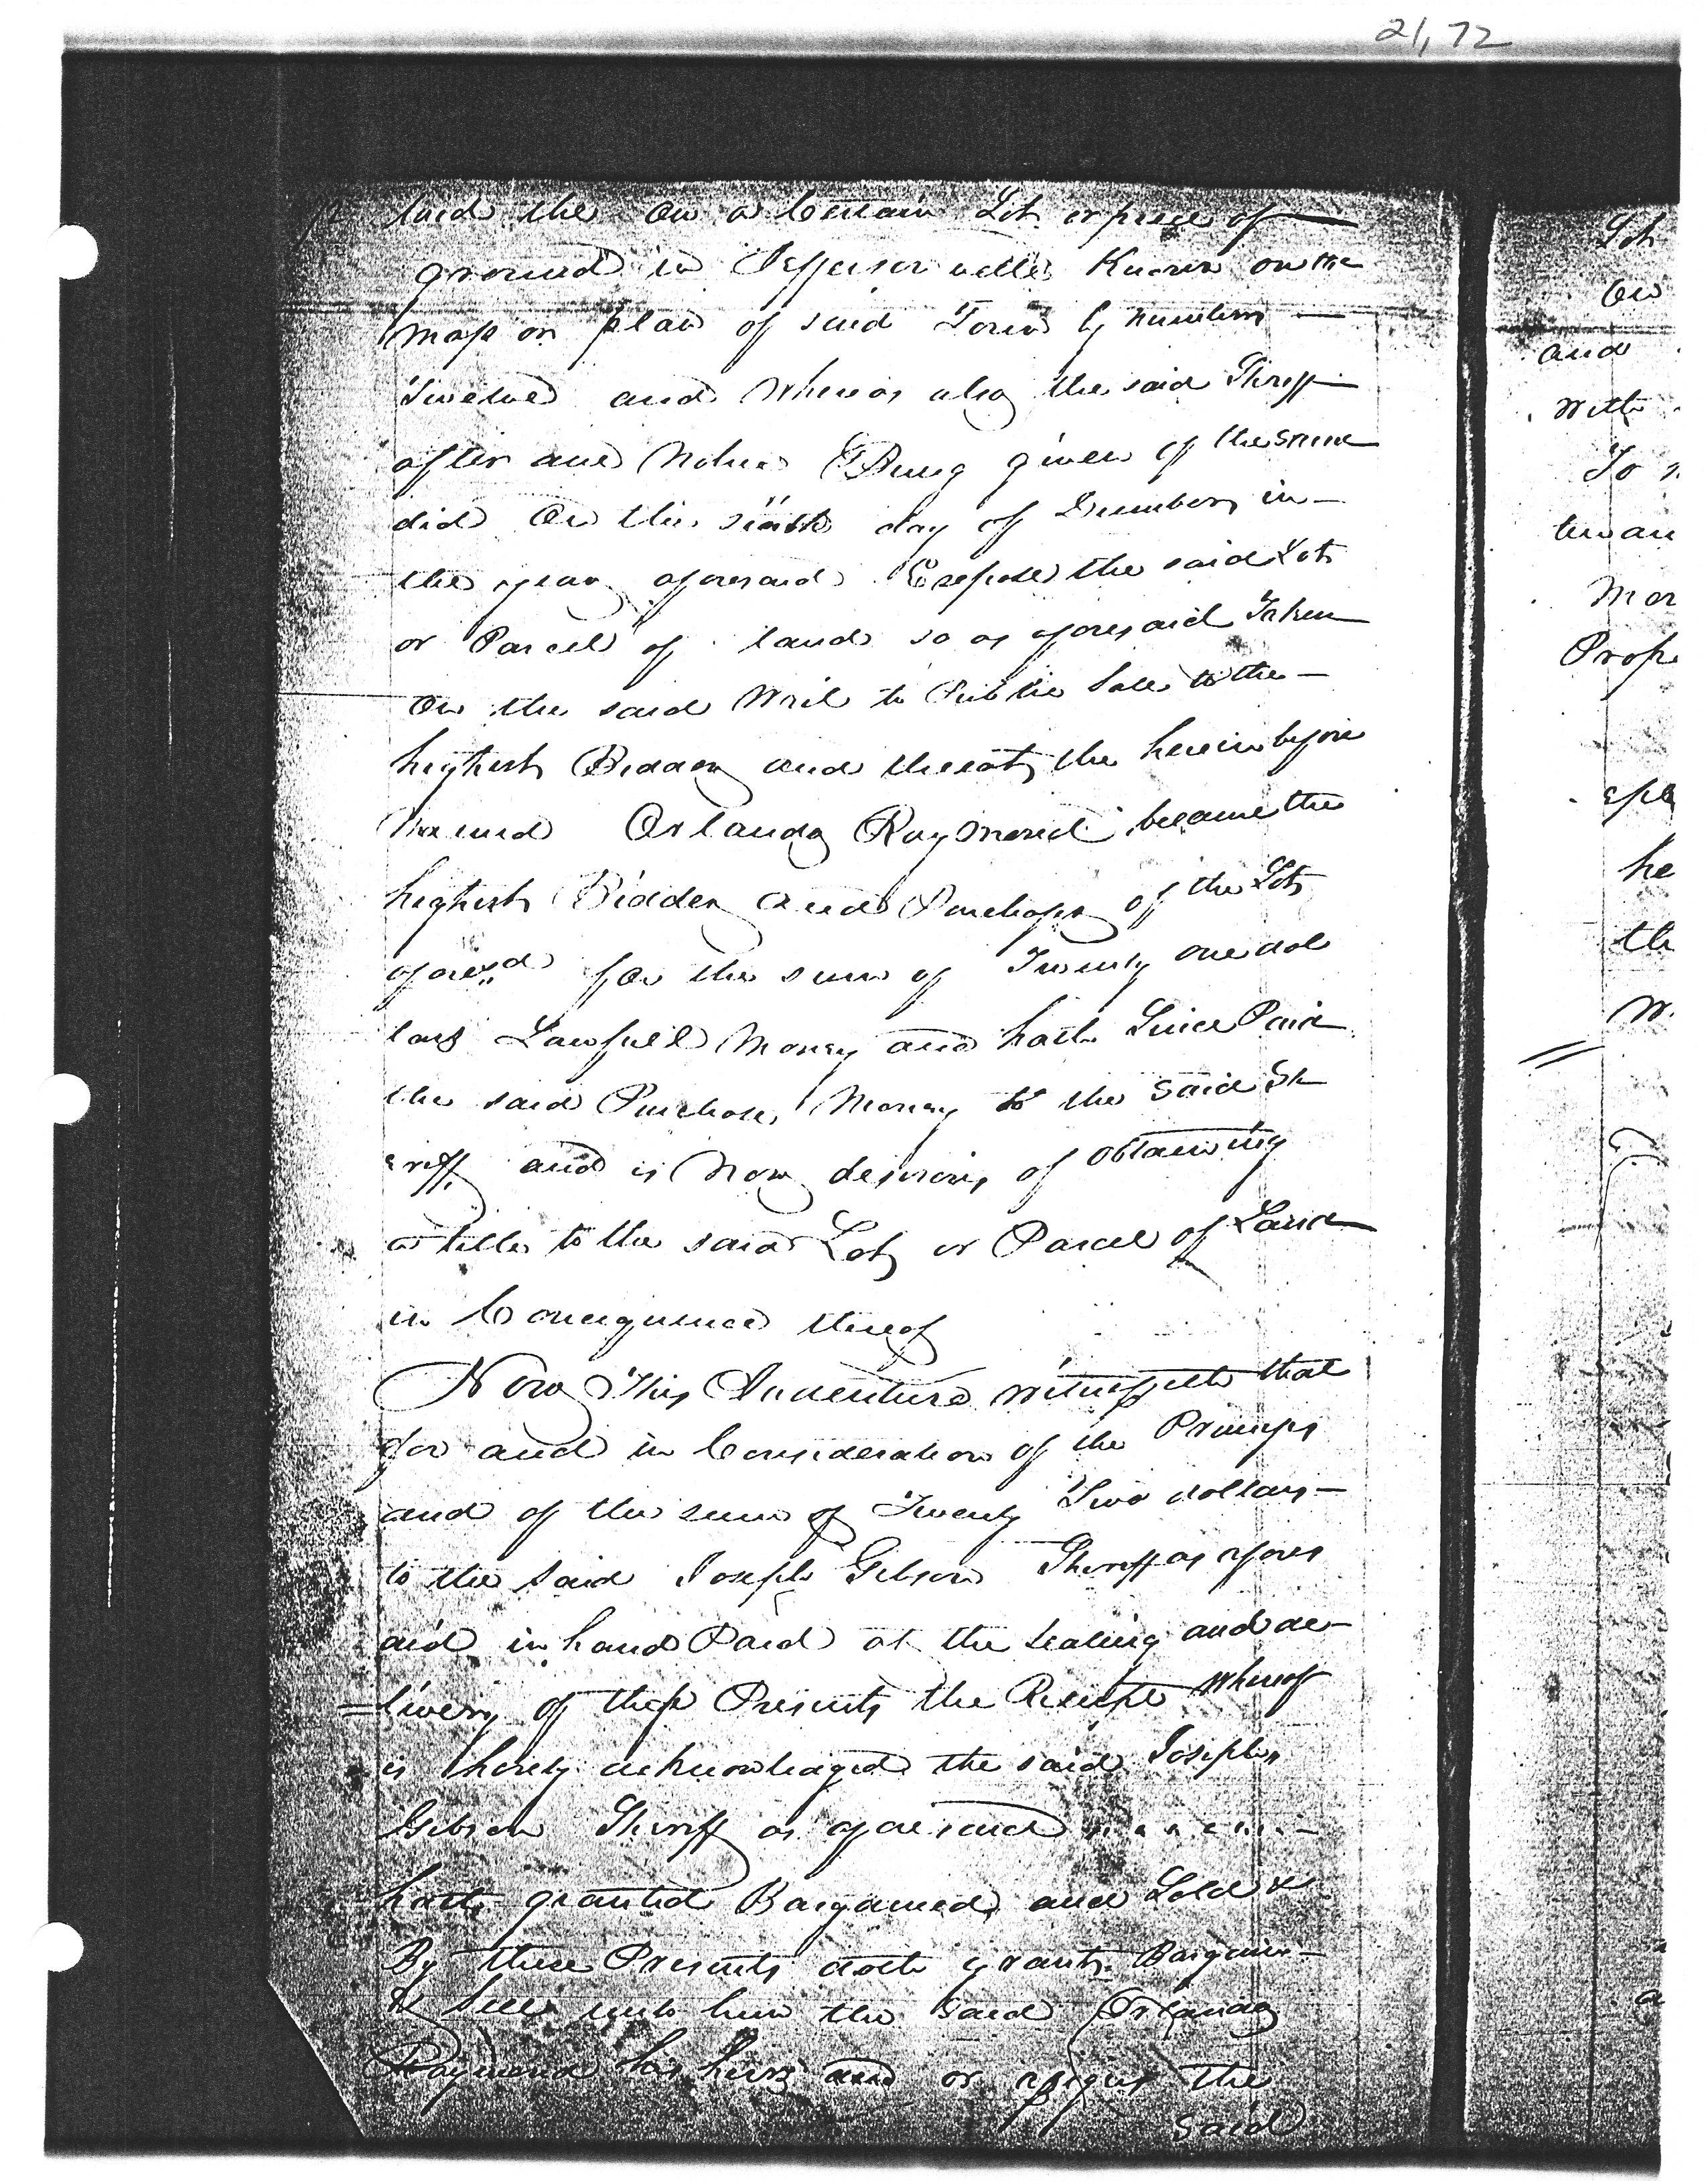 21,72
laid the on a Certain Lot or piece of
ground in Jefferson ville Known on the
map or plan of said Town by number
Twelve and Whereas also the said Sheriff
after due Notice Being given of the same
did On the sixth day of December in
the year aforesaid Expose the said Lot
or Parcel of land so as aforesaid Taken
On the said Writ to Public Sale to the
highest Bidder and thereat the herein before
Named Orlando Raymond became the
highest Bidder and Purchaser of the Lot
afores.d for the sum of Twenty one dol
lars Lawfull Money and hath Since Paid
the said Purchase Money to the said Sh
eriff and is Now desirous of obtaining
a title to the said Lot or Parcel of Land
in Consequence thereof
Now This Indenture witnesseth that
for and in Consideration of the Premises
and of the sum of Twenty Two dollars
to the said Joseph Gibson Sheriff as afores
aid in hand Paid at the Sealing and de-
=livery of these Presents the Receipt Whereof
is hereby acknowledged the said Joseph
Gibson Sheriff as aforesaid
hath granted Bargained and Sold &
By these Presents doth grant Bargain
& Sell unto him the said Orlando
Raymond his heirs and or assigns the
said
Lot
On
and
with
To
Mor
Prope
he
th